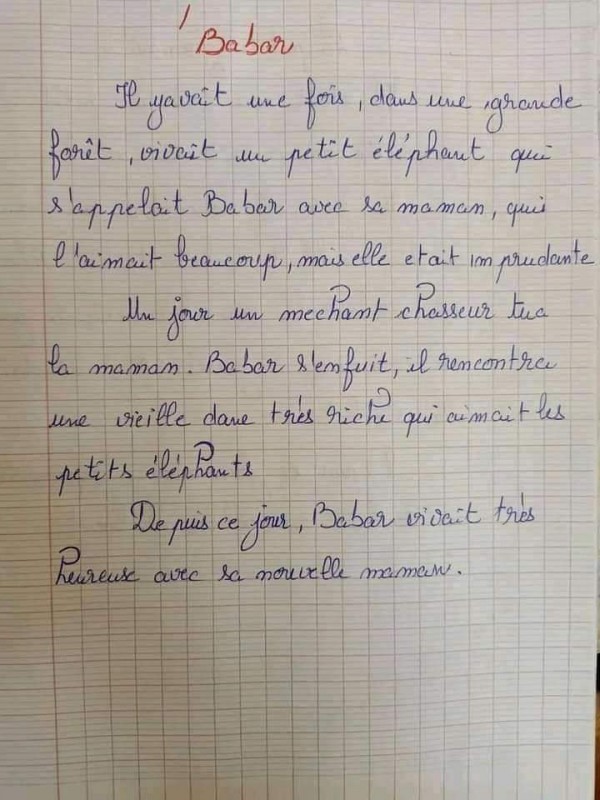 Babar
Il yavait une fois, dans une grande
forêt, vivait un petit éléphant qui
s'appelait Babar avec sa maman, qui
l'aimait beaucoup, mais elle etait imprudante
Un jour un mechant chasseur tua
la maman. Babar s'enfuit, il rencontra
une vieille dame très riche qui aimait les
petits éléphants
Depuis ce jour, Babar vivait très
heureuse avec sa nouvelle maman.